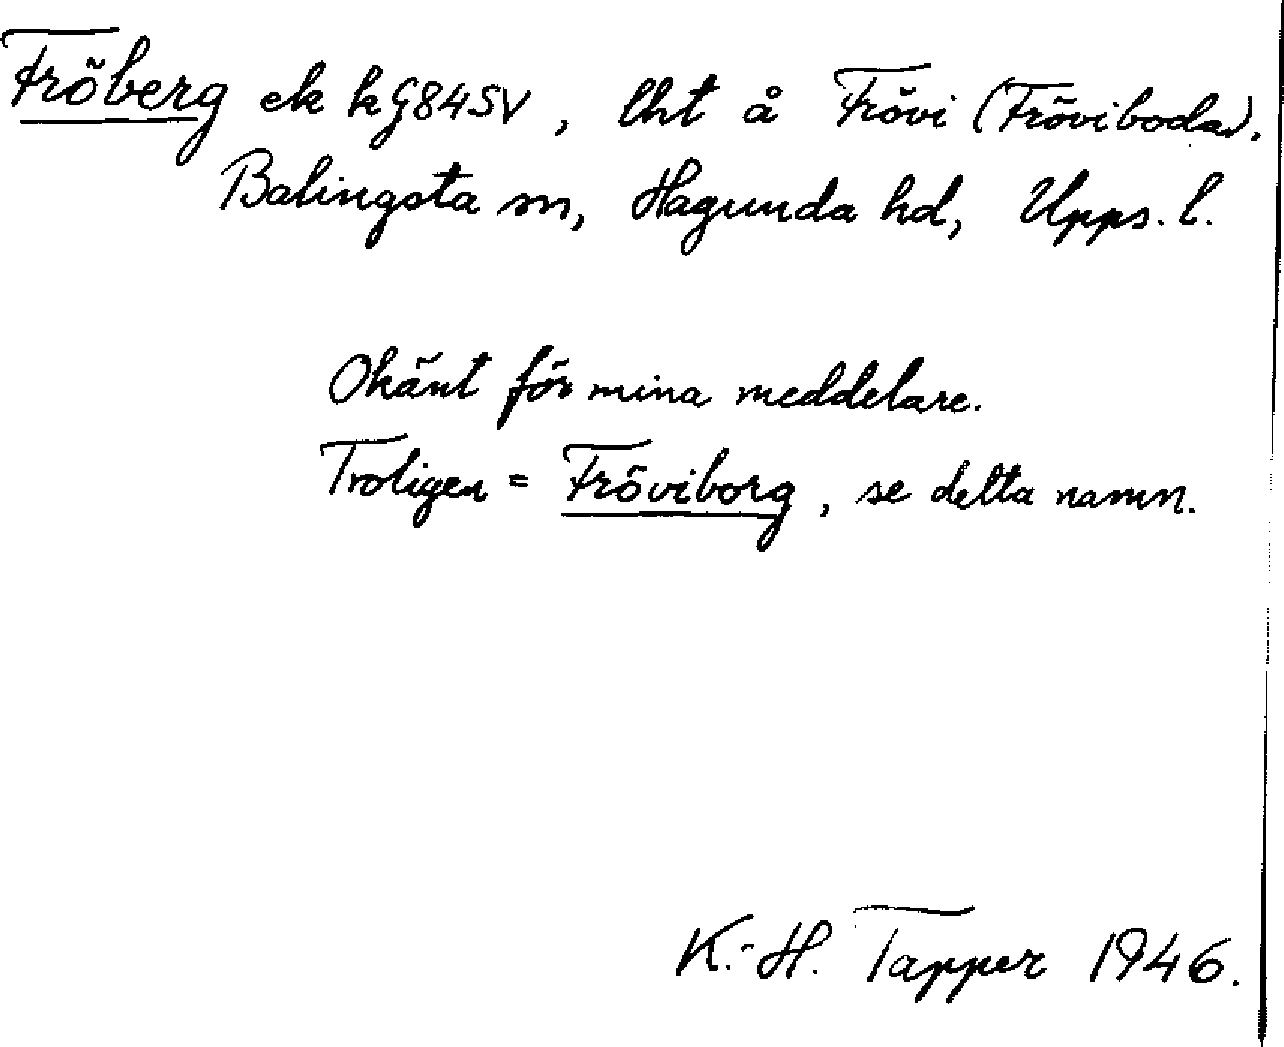 Fröberg ek k G84SV, lht å Frövi (Fröviboda).
Balingsta sn, Hagunda hd, Upps. l.
Okänt för mina meddelare.
Troligen = Fröviborg, se detta namn.
K.-H. Tapper 1946.